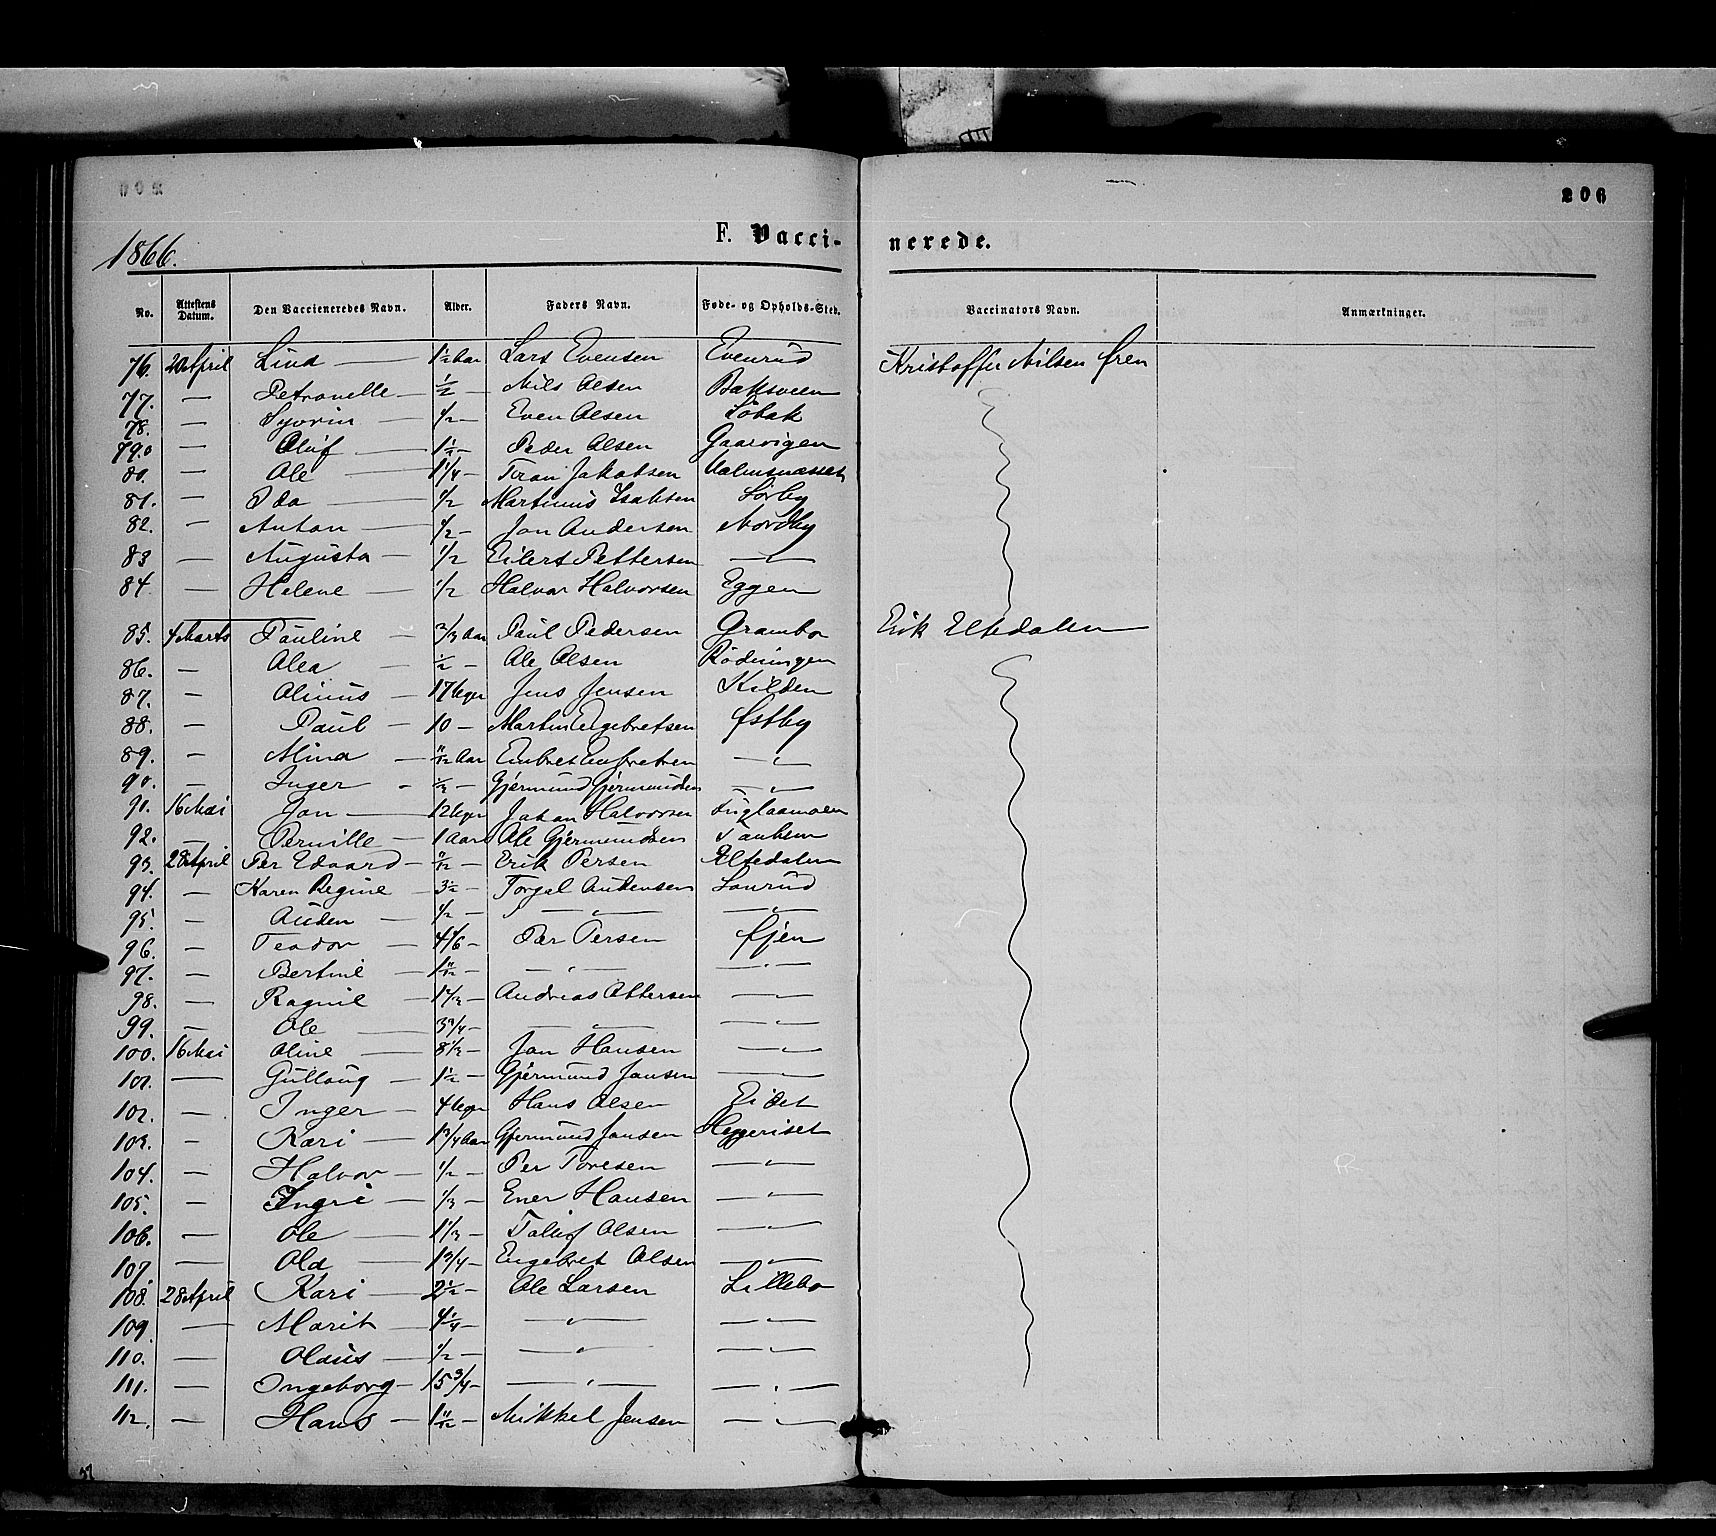 206
1866.
F. Vacci- nerede.
No. Attestens Datum. Den Vaccieneredes Navn. Alder. Faders Navn. Føde- og Opholds-Sted. Vaccinators Navn. Anmærkninger.
76. 20 April Lina — 1½ Aar Lars Evensen Evenrud Kristoffer Nilsen Øren
77. — Petronelle — ½ — Nils Olsen Baksveen
78. — Syverin — ½ — Even Olsen Løbak
79. — Oluf — 1½ — Peder Olsen Gaarvigen
80. — Ole — 1¼ — Jakobsen
81. — Ida — ½ Martinus Isaksen Sørby
82. — Anton — ½ — Jon Andersen Nordby
83 — Augusta — ½ Eilert Pettersen — „ —
84. — Helene — ½ Halvor Halvorsen Eggen
85. 4 Marts Pauline — ⅔ Aar Paul Pedersen Grambo Erik Eltedalen
86. — Olea — ½ — Ole Olsen Rødningen
87. — Olinus — 17 Uger Jens Jensen Kilden
88. — Paul — 10 — Martin Engebretsen Østby
89. — Alina — 11/12 Aar — „
90. — Inger — ½ — Gjermund Gjermundsen — „ —
91. 16 Mai Jon — 12 Uger Johan Halvorsen Fuglaamoen
92. — Pernille — 1 Aar Ole Gjermundsen
93. 28 April Per Edvard — 11/12 — Erik Persen Eltedalen
94. — Karen Regine 3½ — Torgal Audensen
95. — Auden — ½ — — „ — — „ —
96. — Teodor — 4 1/6 — Per Persen Øjen
97. — Bertine — 1 11/12 — „ — — „ —
98. — Ragnil — 1⅔ — Andreas Ottersen — „ —
99. — Ole — 3¾ — — „ — — „ —
100. 16 Mai Oline — 8⅓ — Jon Hansen — „ —
101. — Gulloug — 1½ — Gjermund Jonsen — „ —
102. — Inger — 4 Uger Hans Olsen Eidet
103. — Kari — 1¾ Aar Gjermund Jonsen Heggeriset
104. — Halvor — ½ — Per Toresen — „ —
105. — Ingri — ⅓ — Ener Hansen — „ —
106. — Ole — 1⅓ — Tollef Olsen — „ —
107 — Ola — 1¾ — Engebret Olsen — „ —
108. 28 April Kari — 2½ — Ole Larsen Lillebo
109. — Marit — 4¼ — — „ — — „ —
110. — Olaus — ½ — — „ — — „ —
111. — Ingeborg — 15¾ — — „ — — „ —
112. — Hans — 1 11/12 — Mikkel Jensen — „ —